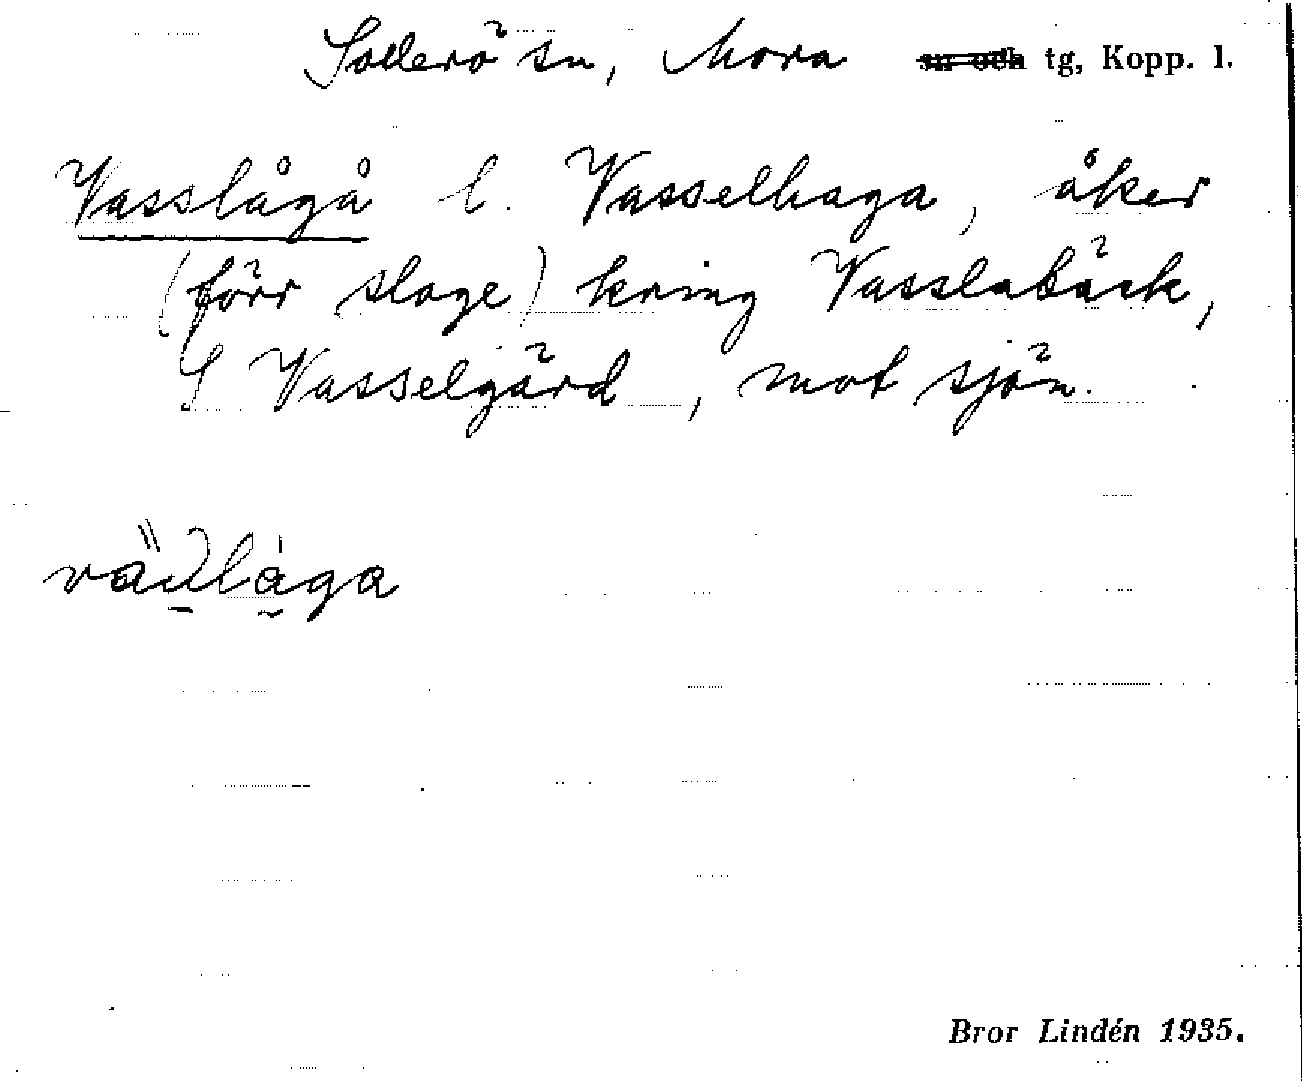 Sollerö sn, Mora ~~sn och~~ tg, Kopp. l.
Vasslågå l. Vasselhaga, åker
(förr sloge) kring Vasslabäck,
S Vasselgärd, mot sjön.
Bror Lindén 1935.